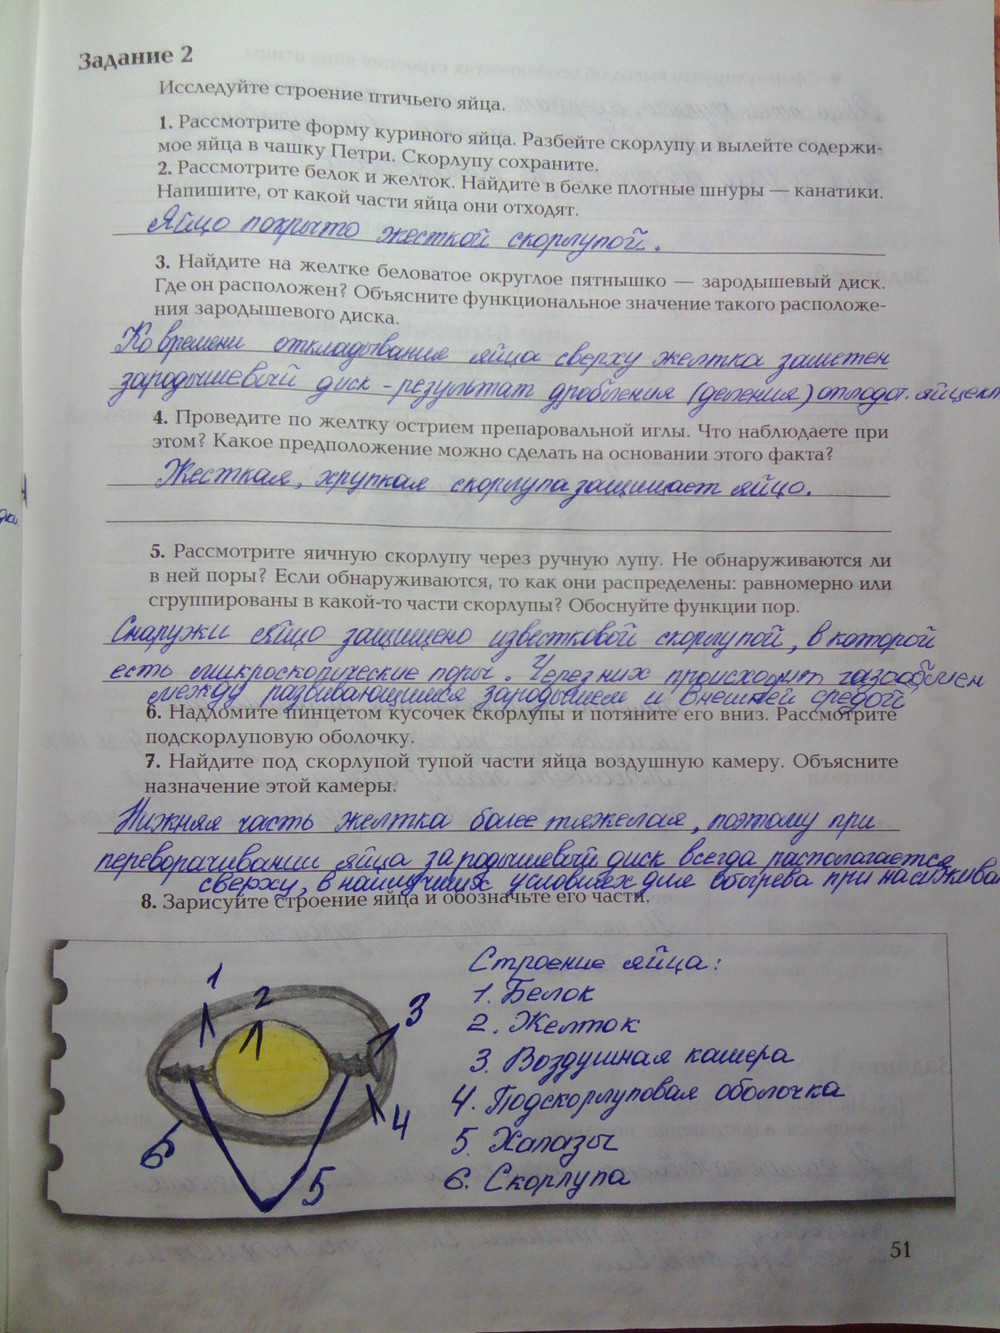 Задание 2
Исследуйте строение птичьего яйца.
1. Рассмотрите форму куриного яйца. Разбейте скорлупу и вылейте содержи-
мое яйца в чашку Петри. Скорлупу сохраните.
2. Рассмотрите белок и желток. Найдите в белке плотные шнуры — канатики.
Напишите, от какой части яйца они отходят.
Яйцо покрыто жесткой скорлупой.
3. Найдите на желтке беловатое округлое пятнышко — зародышевый диск.
Где он расположен? Объясните функциональное значение такого расположе-
ния зародышевого диска.
Ко времени откладывания яйца сверху желтка заметен
зародышевый диск - результат дробления (деления) оплодот. яйцекл
4. Проведите по желтку острием препаровальной иглы. Что наблюдаете при
этом? Какое предположение можно сделать на основании этого факта?
Жесткая, хрупкая скорлупа защищает яйцо.
5. Рассмотрите яичную скорлупу через ручную лупу. Не обнаруживаются ли
в ней поры? Если обнаруживаются, то как они распределены: равномерно или
сгруппированы в какой-то части скорлупы? Обоснуйте функции пор.
Снаружи яйцо защищено известковой скорлупой, в которой
есть микроскопические поры. Через них происходит газообмен
между развивающимся зародышем и внешней средой
6. Надломите пинцетом кусочек скорлупы и потяните его вниз. Рассмотрите
подскорлуповую оболочку.
7. Найдите под скорлупой тупой части яйца воздушную камеру. Объясните
назначение этой камеры.
Нижняя часть желтка более тяжелая, поэтому при
переворачивании яйца зародышевый диск всегда располагается
сверху, в наилучших условиях для обогрева при насижива
8. Зарисуйте строение яйца и обозначьте его части.
1
2
3
4
5
6
Строение яйца:
1. Белок
2. Желток
3. Воздушная камера
4. Подскорлуповая оболочка
5. Халазы
6. Скорлупа
51